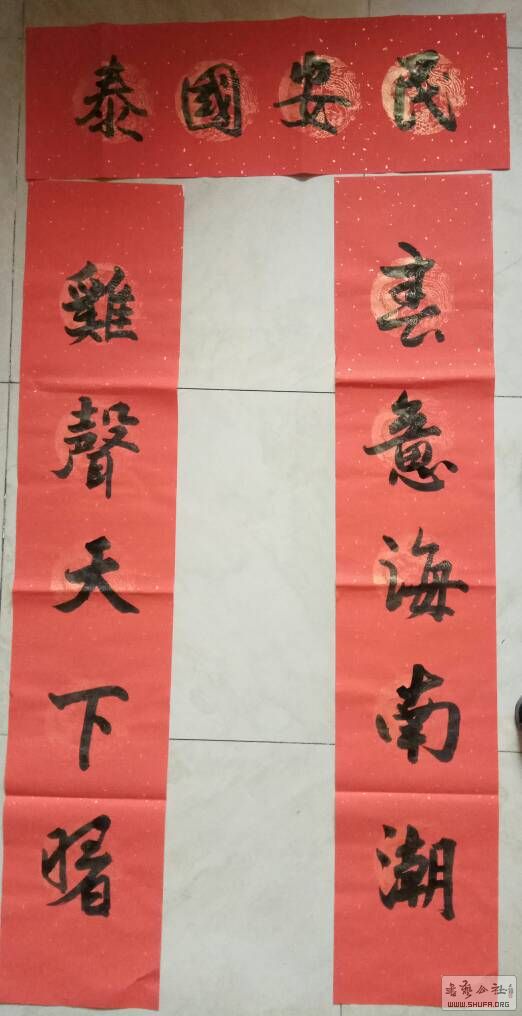 民安國泰
春意海南潮
雞聲天下曙
书艺公社
WWW.SHUFA.ORG